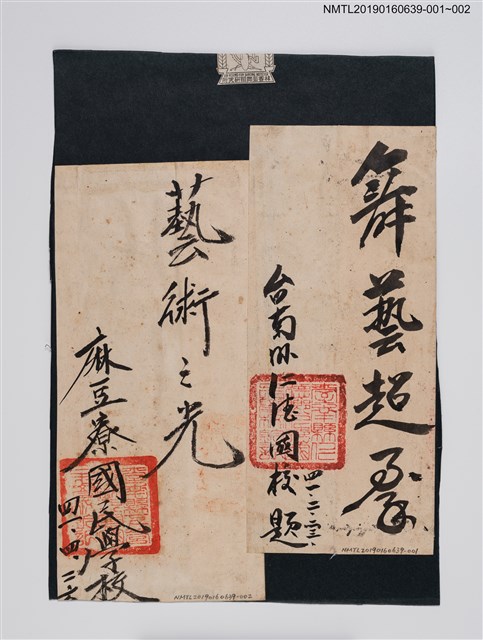 NMTL20190160639-001~002
舞藝超羣
台南縣仁德國校題
四一、二、二三、
NMTL20190160639-001
藝術之光
麻豆寮國民學校
NMTL20190160639-002